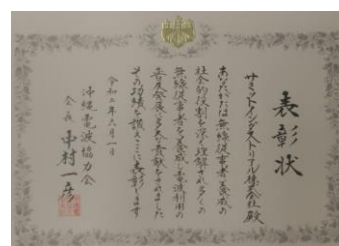 表彰状
サミットインダストリアル株式会社殿
あなたがたは無線従事者養成の
社会的役割を深く理解され多くの
無線従事者を養成し電波利用の
普及発展に多大な貢献をされました
その功績を讃えここに表彰します
令和二年六月一日
沖縄電波協力会
会長 中村一彦